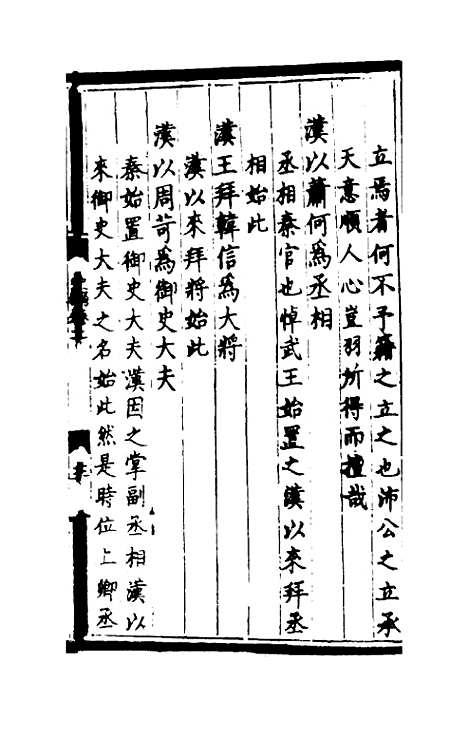 立焉者何不予籍之立之也沛公之立承
天意順人心豈羽所得而擅哉
漢以蕭何為丞相
丞相秦官也悼武王始置之漢以來拜丞
相始此
漢王拜韓信為大將
漢以來拜將始此
漢以周苛為御史大夫
秦始置御史大夫漢因之掌副丞相漢以
來御史大夫之名始此然是時位上卿丞